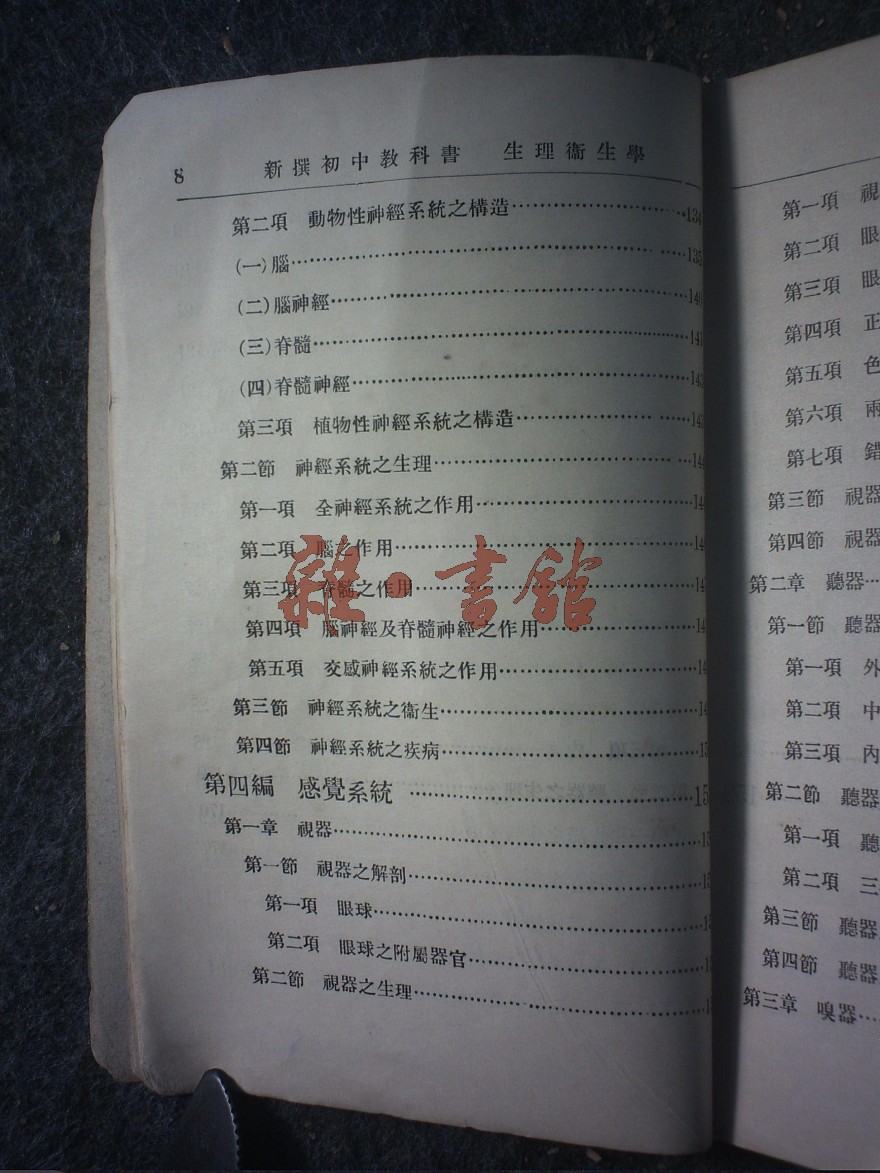 8 新撰初中教科書 生理衞生學
第二項 動物性神經系統之構造……134
(一)腦……135
(二)腦神經……140
(三)脊髓……141
(四)脊髓神經……
第三項 植物性神經系統之構造……
第二節 神經系統之生理……
第一項 全神經系統之作用……
第二項 腦之作用……
第三項 脊髓之作用……
第四項 腦神經及脊髓神經之作用……
第五項 交感神經系統之作用……
第三節 神經系統之衞生……
第四節 神經系統之疾病……
第四編 感覺系統……
第一章 視器……
第一節 視器之解剖……
第一項 眼球……
第二項 眼球之附屬器官……
第二節 視器之生理……
雜·書館
第一項 視
第二項 眼
第三項 眼
第四項 正
第五項 色
第六項 兩
第七項 錯
第三節 視器
第四節 視器
第二章 聽器…
第一節 聽器
第一項 外
第二項 中
第三項 內
第二節 聽器
第一項 聽
第二項 三
第三節 聽器
第四節 聽器
第三章 嗅器…